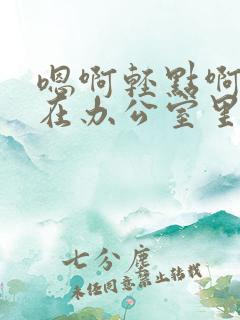 嗯啊輕點啊
在办公室里
七分尘
未经同意禁止转载